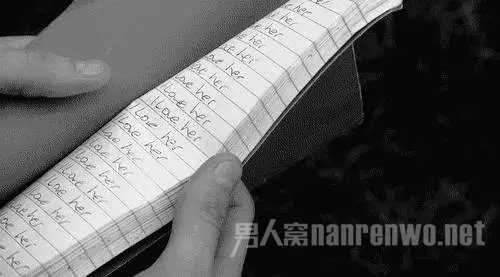 her
her
her
love her
love her
love her
love her
love her
I love her
love her
love her
love her
love her
love her
love her
love her
love her
her
男人窝nanrenwo.net